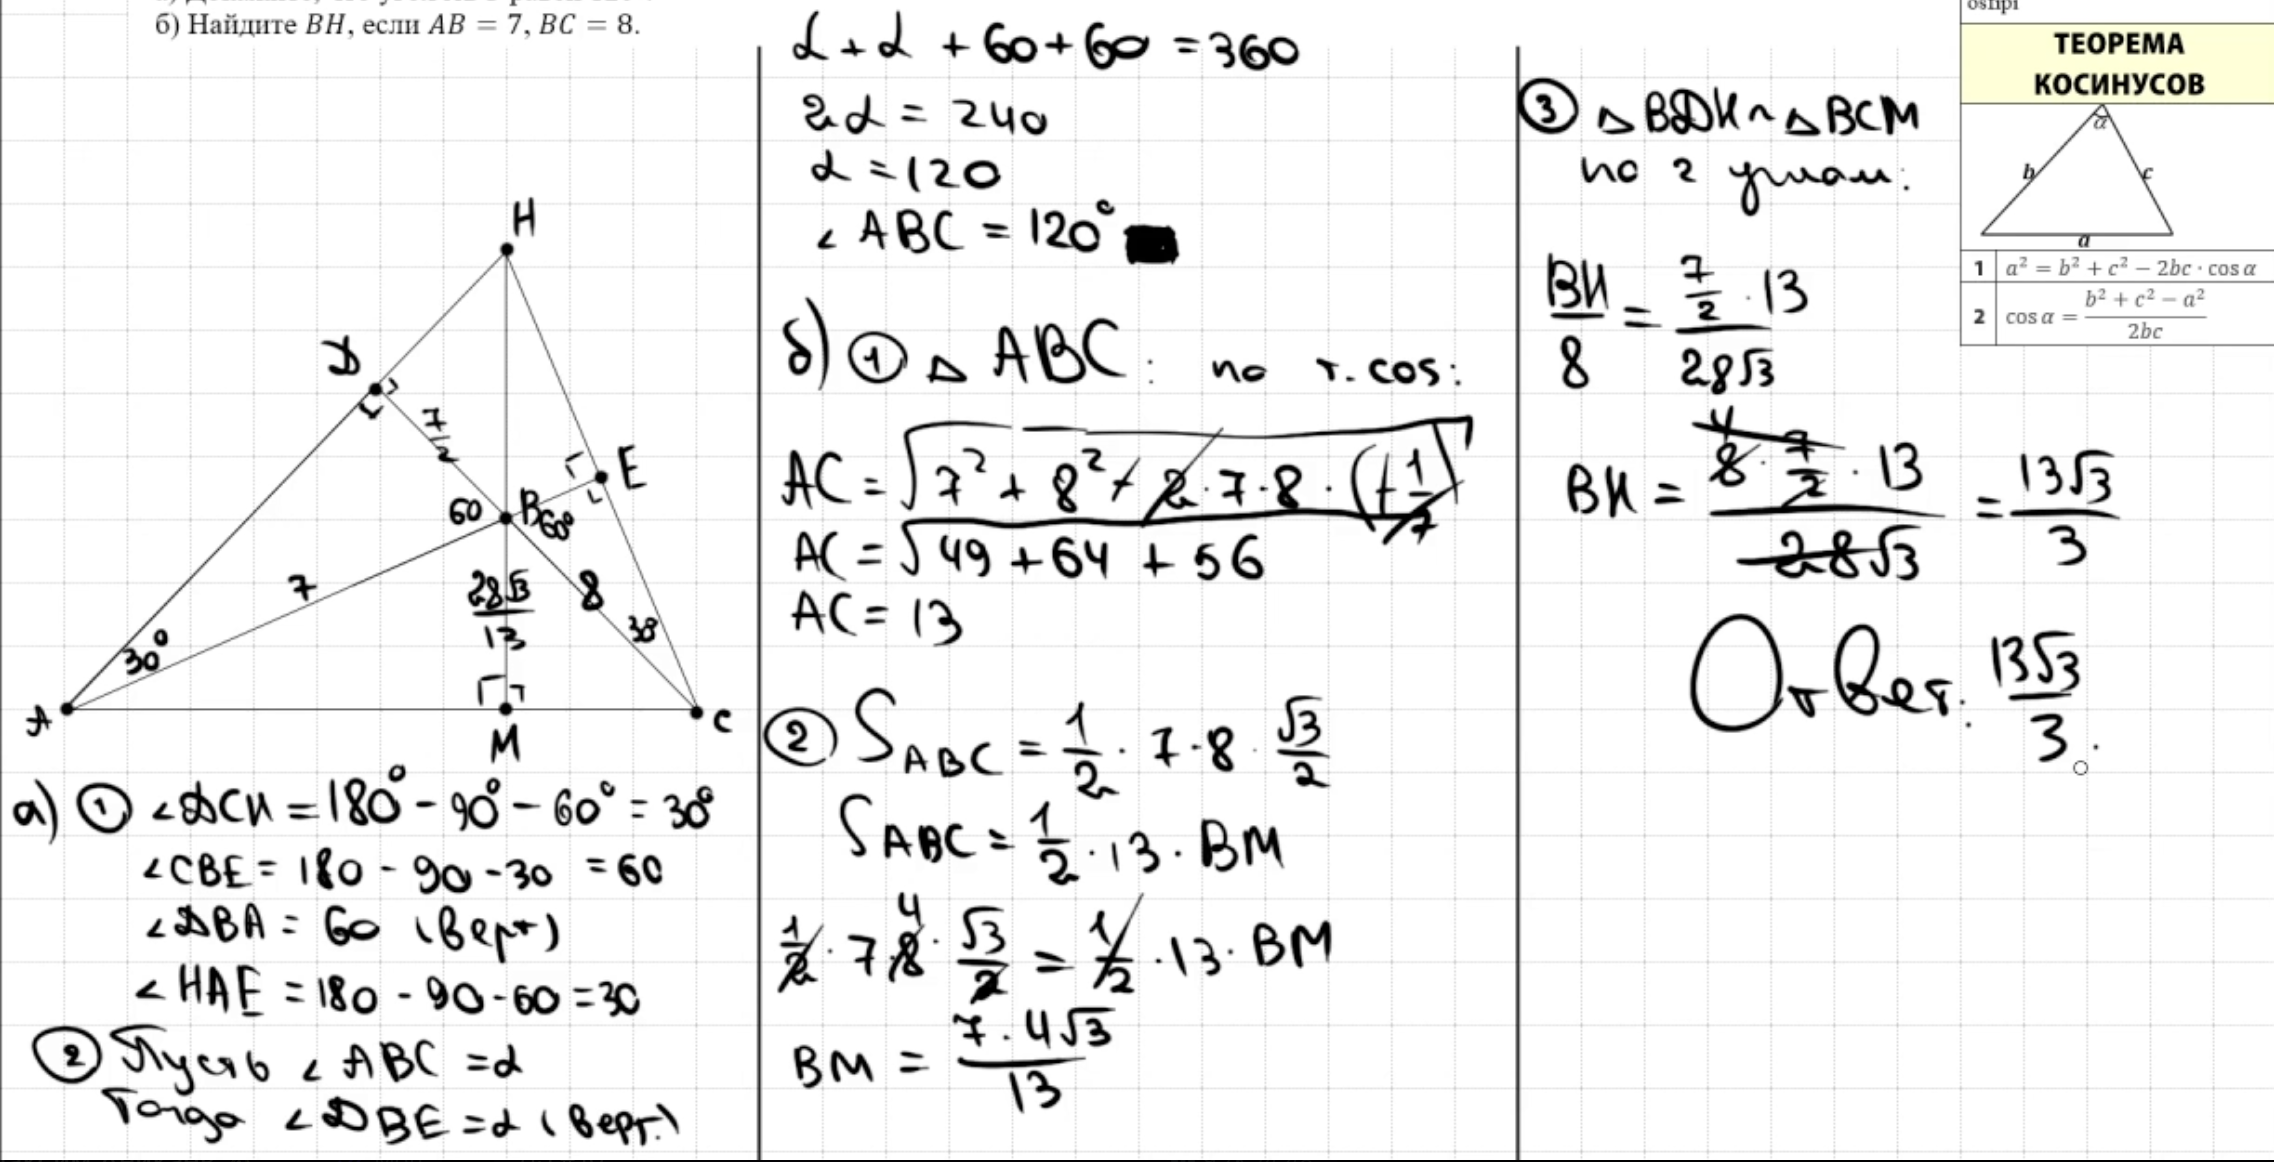 б) Найдите BH, если AB = 7, BC = 8.
H
D
7/2
E
60
B
60°
7
28√3/13
8
30°
30°
A
M
C
а) ① ∠DCH = 180° - 90° - 60° = 30°
∠CBE = 180 - 90 - 30 = 60
∠DBA = 60 (верт)
∠HAE = 180 - 90 - 60 = 30
② Пусть ∠ABC = α
Тогда ∠DBE = α (верт.)
α + α + 60 + 60 = 360
2α = 240
α = 120
∠ABC = 120°
б) ① △ABC: по т. cos:
AC = √(7² + 8² + 2·7·8·(+1/2))
AC = √(49 + 64 + 56)
AC = 13
② S_ABC = 1/2 · 7 · 8 · √3/2
S_ABC = 1/2 · 13 · BM
1/2 · 7 · 8 4 · √3/2 = 1/2 · 13 · BM
BM = 7 · 4√3 / 13
③ △BDH ~ △BCM
по 2 углам:
BH/8 = (7/2 · 13)/(28√3)
BH = (8 4 · 7/2 · 13)/(28√3) = 13√3/3
Ответ: 13√3/3.
ТЕОРЕМА
КОСИНУСОВ
α
b
c
a
1 a² = b² + c² − 2bc · cos α
2 cos α = (b² + c² − a²)/2bc